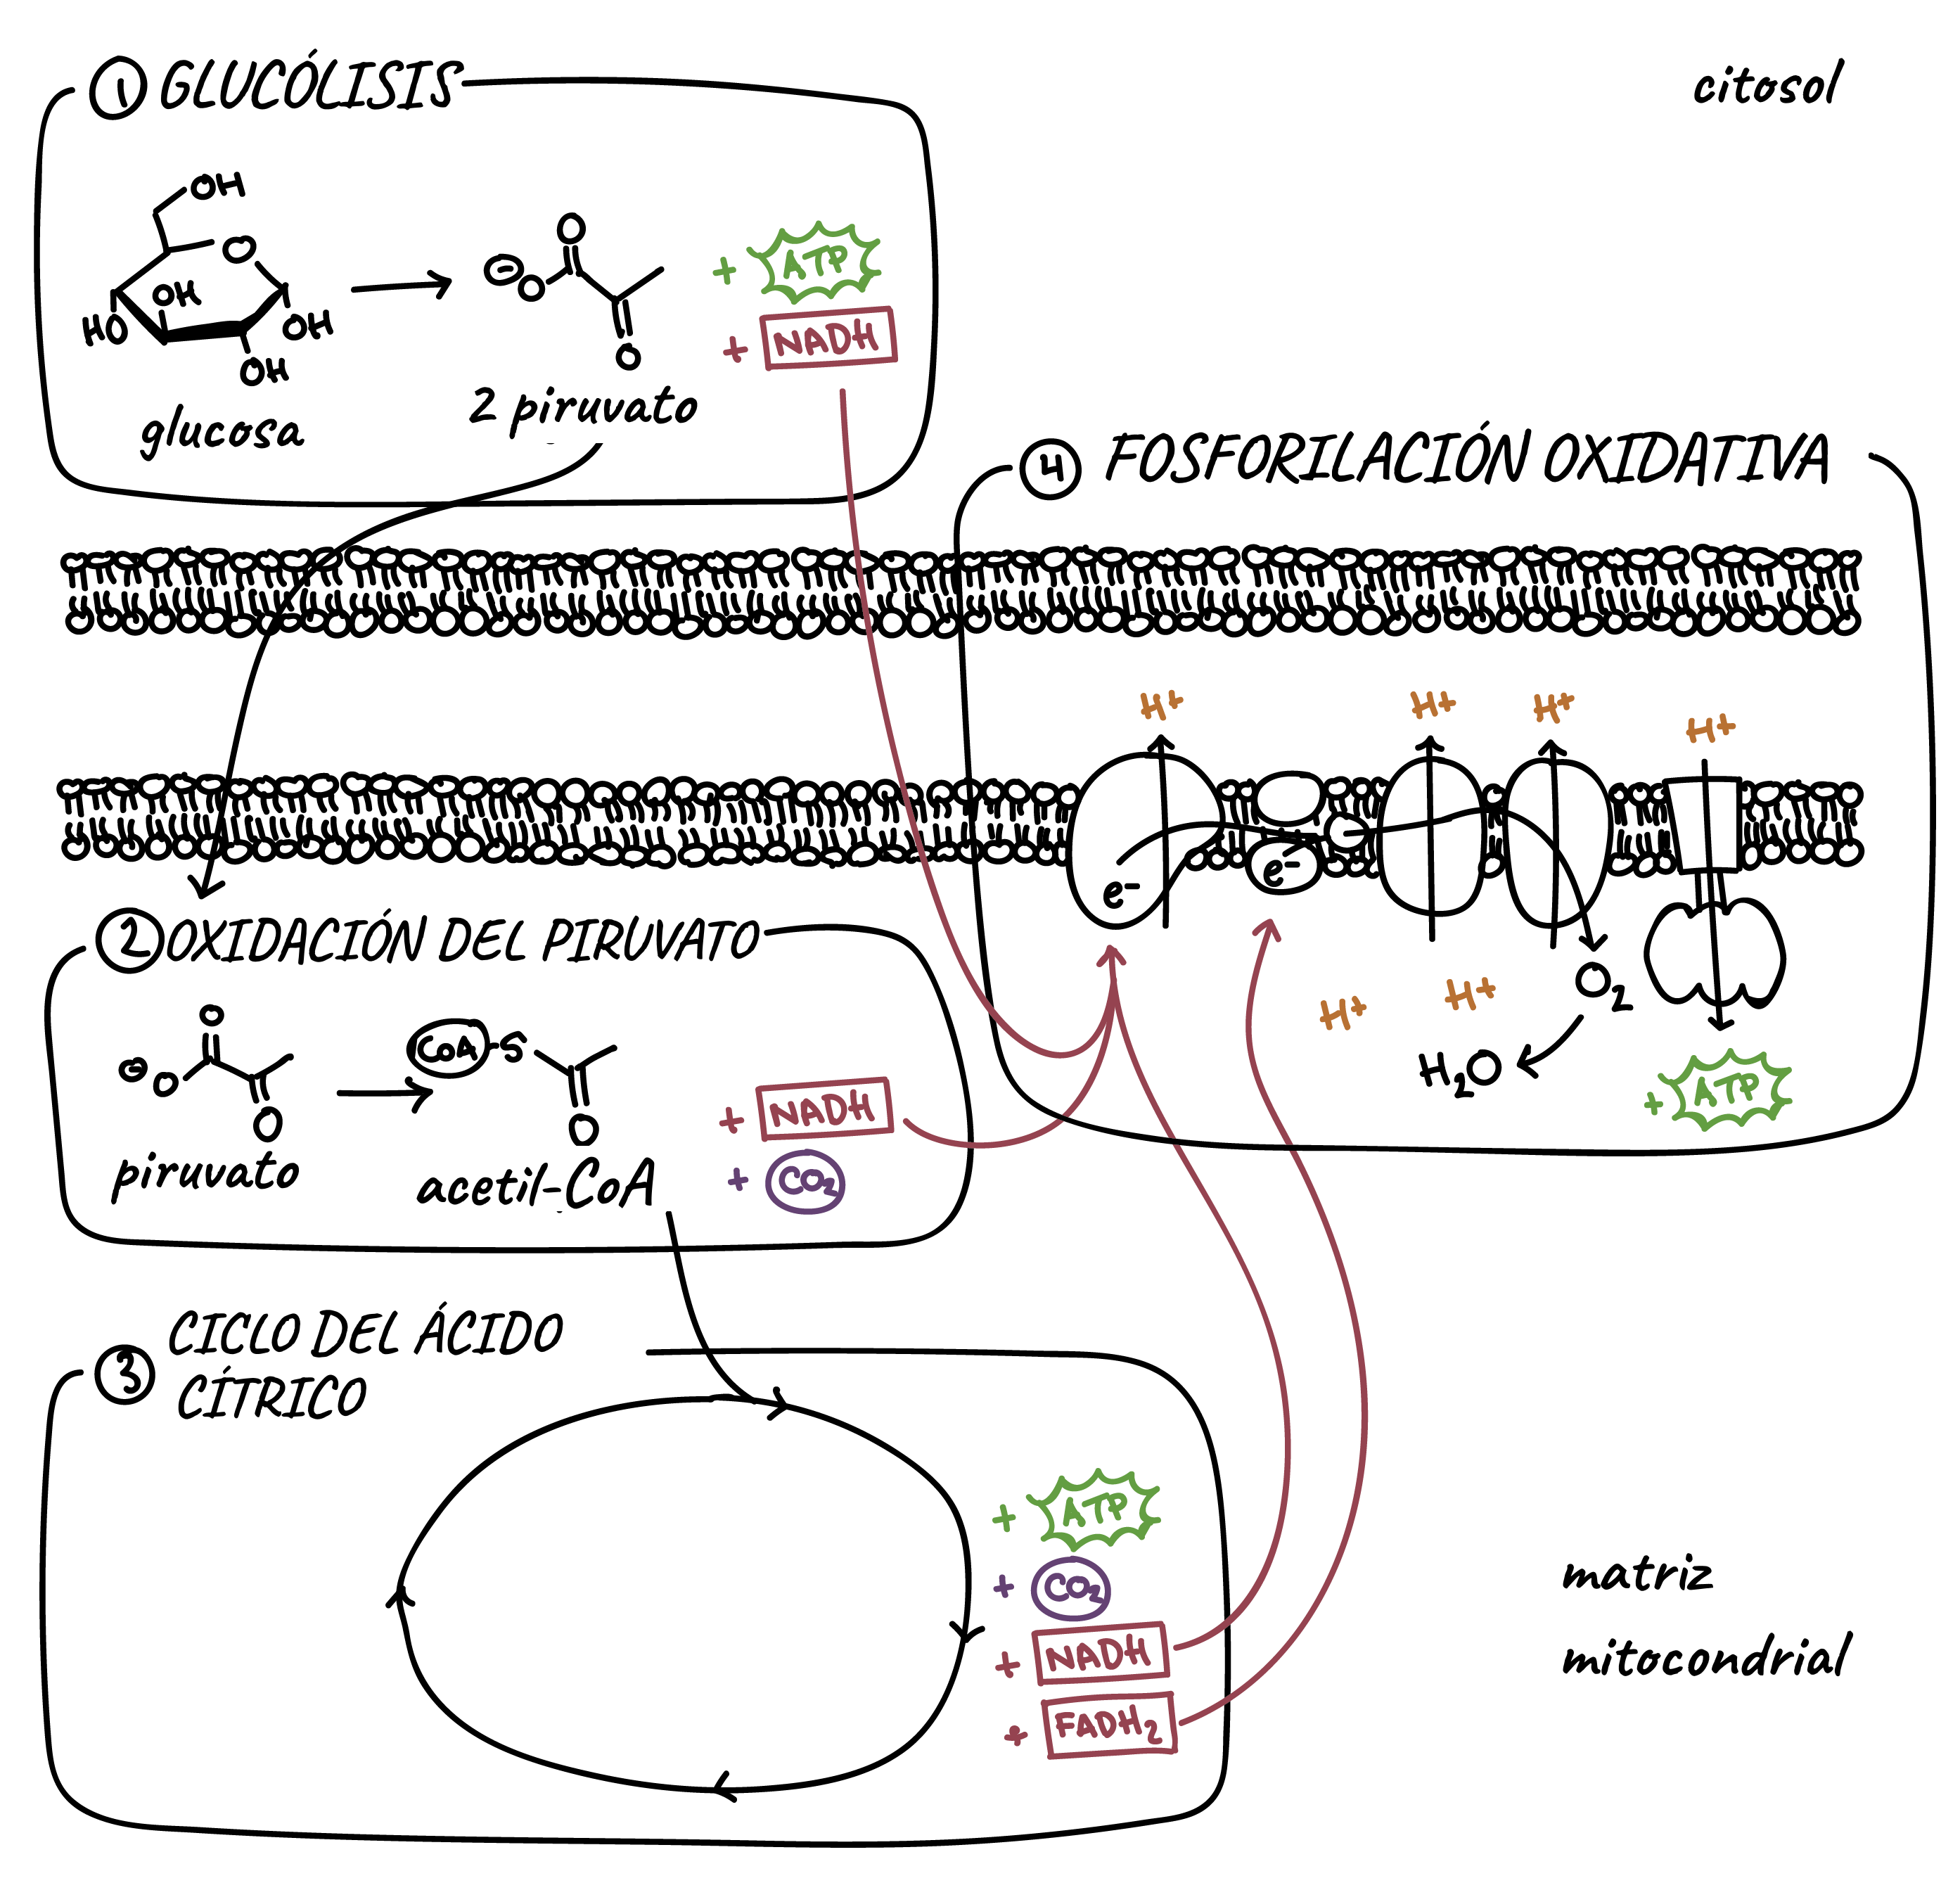 1 GLUCÓLISIS
citosol
OH
O
OH
HO
OH
OH
glucosa
O
⊖ O
O
2 piruvato
+ ATP
+ NADH
4 FOSFORILACIÓN OXIDATIVA
H+
H+
H+
H+
e-
e-
H+
H+
O2
H2O
+ ATP
2 OXIDACIÓN DEL PIRUVATO
O
⊖ O
O
piruvato
CoA-S
O
acetil-CoA
+ NADH
+ CO2
3 CICLO DEL ÁCIDO
CÍTRICO
+ ATP
+ CO2
+ NADH
+ FADH2
matriz
mitocondrial